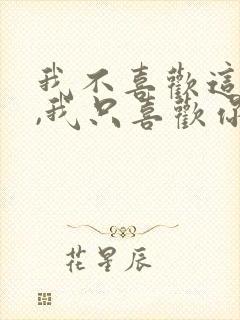 我不喜歡這
,我只喜歡你
花星辰